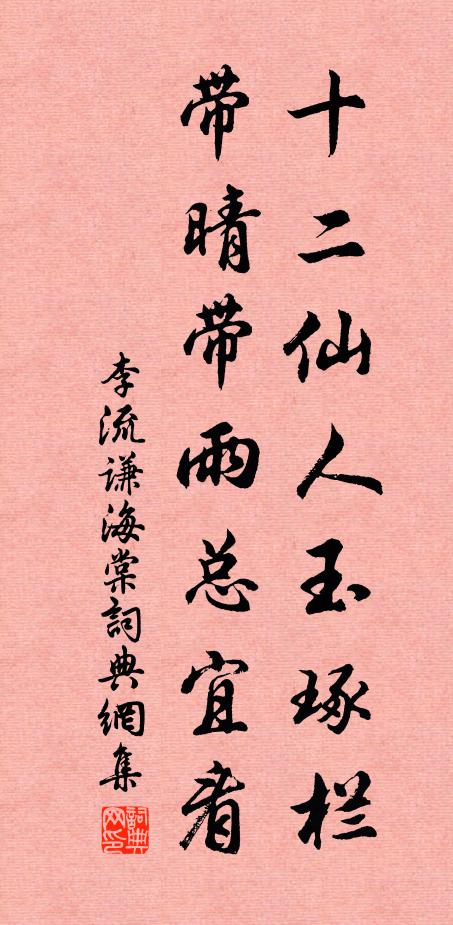 十二仙人玉琢栏
带晴带雨总宜看
李流谦海棠詞典網集
詞典网印